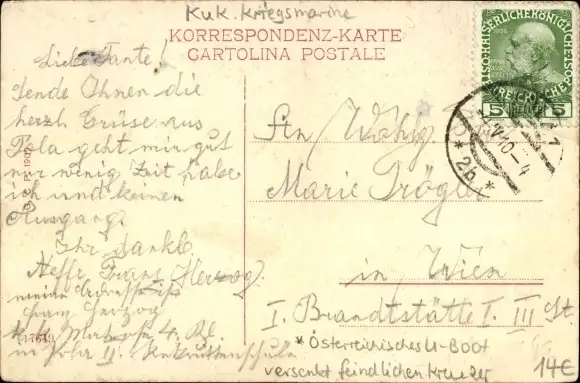 KuK. Kriegsmarine
KORRESPONDENZ-KARTE
CARTOLINA POSTALE
Liebe Tante!
Sende Ihnen die
herzl Grüse aus
Pola geht mir gut
nur wenig Zeit habe
ich und keinen
Ausgang.
Ihr dankb
Neffe Franz (Herzog)
meine
Franz Herzog
4.
in Pola II.
17649
An Wohlg
Marie Trögl
in Wien
I. Brandtstätte I. III St.
* Österreichisches U-Boot
versenkt feindlichen Kreuzer
14€
5 5
V 10-4
* 2b *